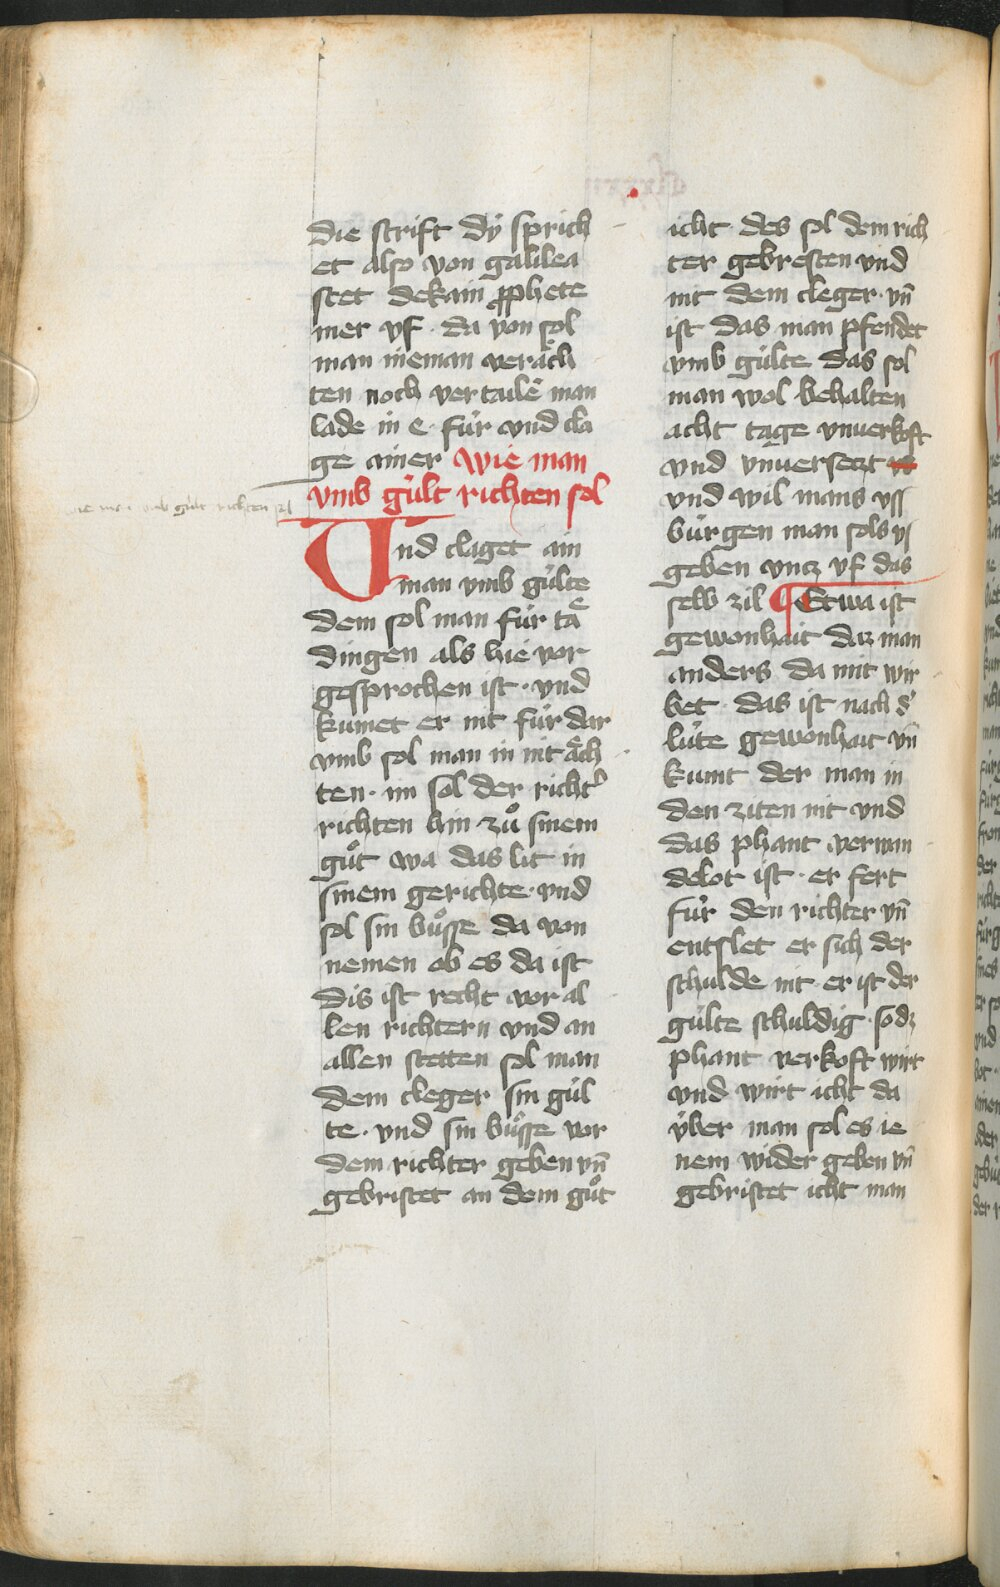 die strift dÿ sprich
et also von galilea
stet dekain ꝓphete
mer vf · da von sol
man nieman veraͤch
ten noch vertailē man
lade in e · fúr vnd cla
ge ainer wie man
vmb gúlt richten sol
wie man vmb gúlt richten sol
Vnd claget ain
man vmb gúlte
dem sol man fúr taͤ
dingen als hie vor
gesprochen ist · vnd
kumet er nit fúr dar
vmb sol man in nit aͤch
ten · im sol der richt͛
richten hin zuͦ sinem
guͦt wa das lit in
sinem gerichte · vnd
sol sin buͦsse da von
nemen ob es da ist
Dis ist recht vor al
len richtern vnd an
allen stetten sol man
dem cleger sin gúl
te · vnd sin buͦsse vor
dem richter geben vn̄
gebristet an dem guͦt
icht · des sol dem rich
ter gebresten vnd
nit dem cleger · vn̄
ist das man pfendet
vmb gúlte das sol
man wol behalten
acht tage vnuerkoft
vnd vnuersetzt
vnd wil mans vss
búrgen man sols vs
geben vntz vf das
selb zil ¶ Etwa ist
gewonhait daz man
anders da mit wir
bet · das ist nach d͛
lúte gewonhait vn̄
kumt der man in
den ziten nit vnd
das phant verwan
delot ist · er fert
fúr den richter vn̄
entslet er sich der
schulde nit · er ist der
gúlte schuldig · so dz
phant verkoft wirt
vnd wirt icht da
v́ber man sol es ie
nem wider geben vn̄
gebristet icht man